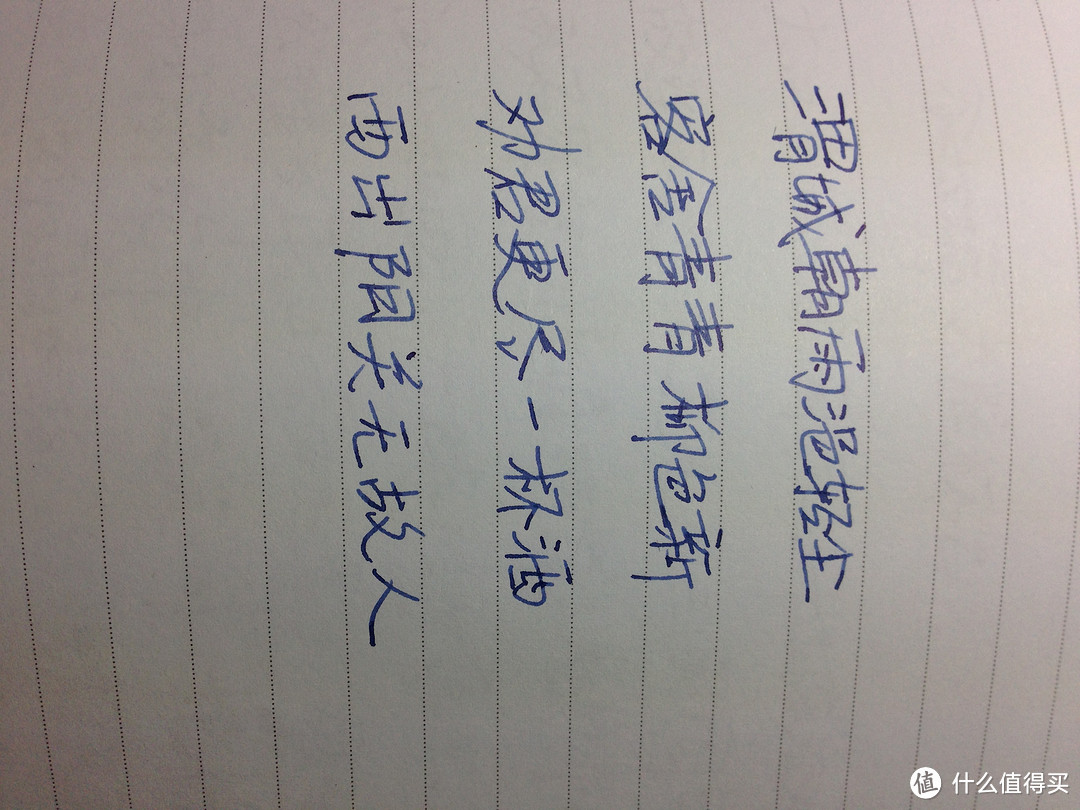 渭城朝雨浥轻尘
客舍青青柳色新
劝君更尽一杯酒
西出阳关无故人
值 什么值得买